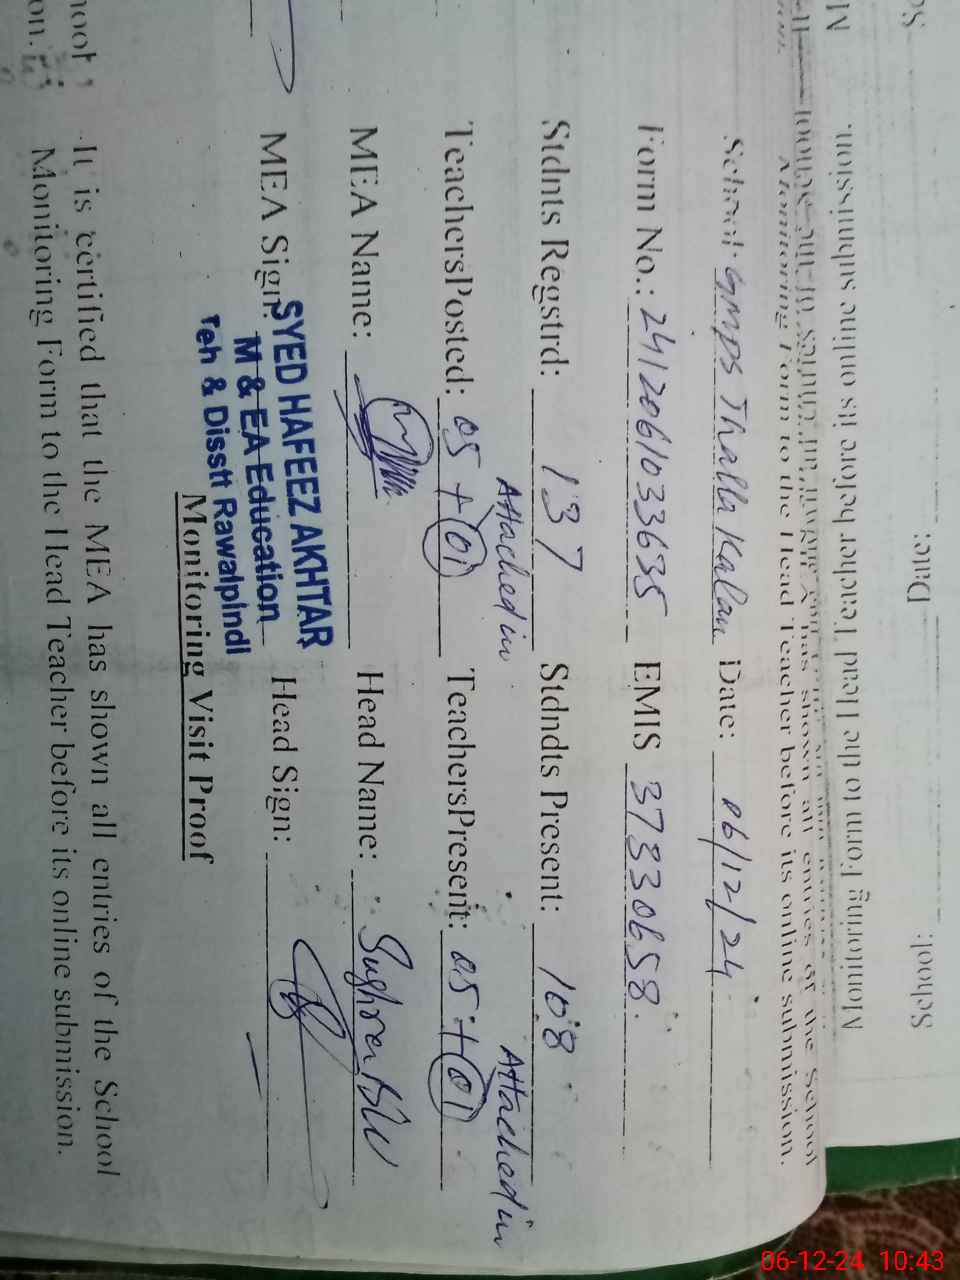 Monitoring Form to the Head Teacher before its online submission.
School: Gmps Thalla Kalan Date: 06/12/24
Form No.: 2412061033635 EMIS 37330658
Stdnts Regstrd: 137 Stdndts Present: 108
Attached in Attached in
TeachersPosted: 05 + 01 TeachersPresent: 05 + 01
MEA Name: Head Name:
MEA Sign: Head Sign:
SYED HAFEEZ AKHTAR
M & EA Education
Teh & Disstt Rawalpindi
Monitoring Visit Proof
It is certified that the MEA has shown all entries of the School
Monitoring Form to the Head Teacher before its online submission.
School:
Date:
Monitoring Form to the Head Teacher before its online submission.
06-12-24 10:43